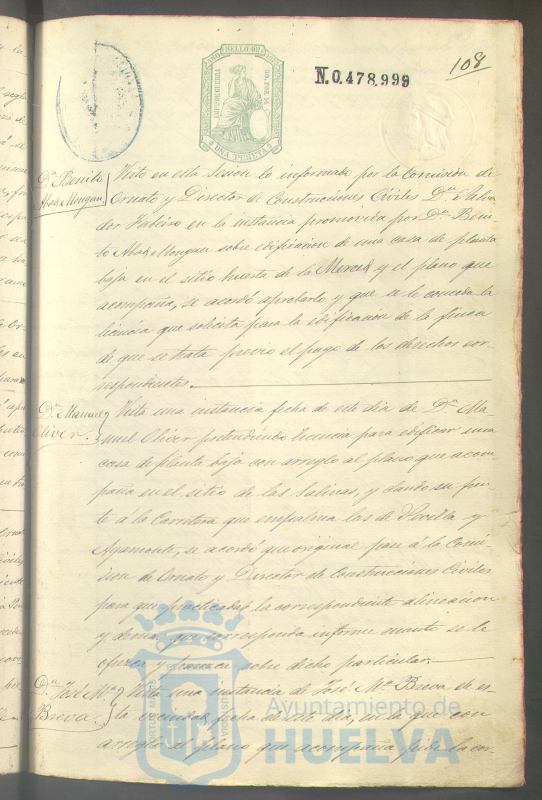 AÑO SELLO 10º 1877
N.0.478,999
108
UNA PESETA
Dn. Benito
Abad Mongan
Visto en esta Sesion lo informado por la Comision de
Ornato y Director de Construcciones Civiles Dn. Salva
dor en la instancia promovida por Dn. Beni
to Abad Mongan sobre edificacion de una casa de planta
baja en el sitio huerta de la Merced y el plano que
acompaña, se acordó aprobarlo y que se le conceda la
licencia que solicita para la edificacion de la finca
de que se trata previo el pago de los derechos cor-
respondientes.
Dn. Manuel
Oliver.
Vista una instancia fecha de este dia de Dn. Ma-
nuel Oliver pretendiendo licencia para edificar una
casa de planta baja con arreglo al plano que acom-
paña en el sitio de las Salinas, y dando su fren-
te á la Carretera que empalma las de Sevilla y
Ayamonte, se acordó que original pase á la Comi-
sion de Ornato y Director de Construcciones Civiles
para que practicada la correspondiente alineacion
y demas que corresponda informe cuanto se le
ofrezca y parezca sobre dicho particular.
Dn. José Ma.
Breva.
Vista una instancia de José Ma. Breva de es
ta vecindad, fecha de este dia, en la que con
arreglo al plano que acompaña pide la cor-
Ayuntamiento de
HUELVA